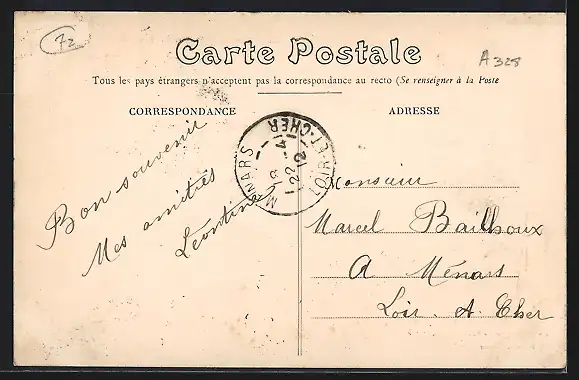 72
Carte Postale
A 328
Tous les pays étrangers n'acceptent pas la correspondance au recto (Se renseigner à la Poste
CORRESPONDANCE
ADRESSE
Bon souvenir
Mes amitiés
Léontine
MENARS
LOIR-ET-CHER
22 -4
12
Monsieur
Marcel Bailhoux
A Ménars
Loir. A. Cher